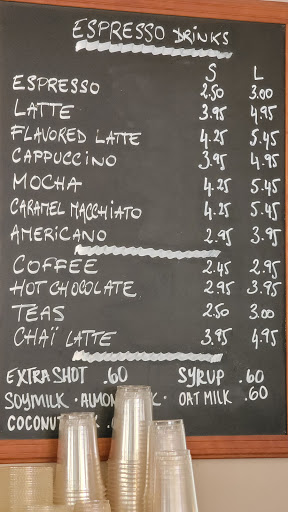 ESPRESSO DRINKS
S L
ESPRESSO 2.50 3.00
LATTE 3.95 4.95
FLAVORED LATTE 4.25 5.45
CAPPUCCINO 3.95 4.95
MOCHA 4.25 5.45
CARAMEL MACCHIATO 4.25 5.45
AMERICANO 2.95 3.95
COFFEE 2.45 2.95
HOT CHOCOLATE 2.95 3.95
TEAS 2.50 3.00
CHAÏ LATTE 3.95 4.95
EXTRA SHOT .60 SYRUP .60
SOYMILK · · OAT MILK .60
COCONUT